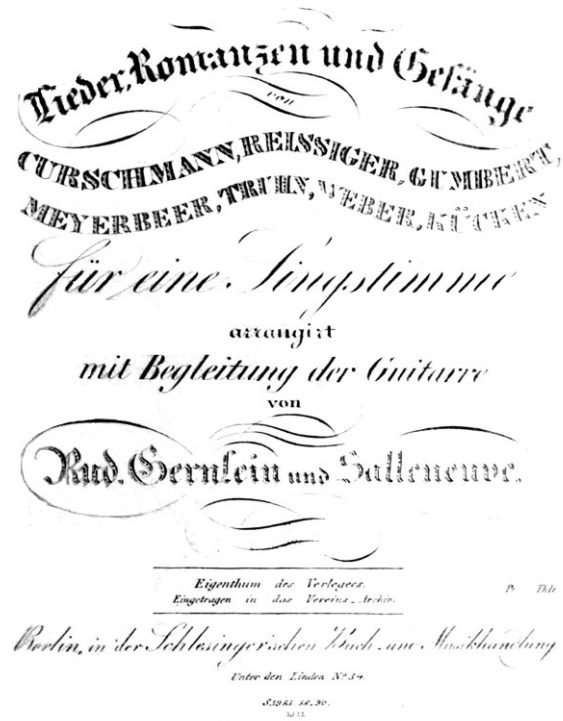 Lieder, Romanzen und Gesänge
von
CURSCHMANN, REISSIGER, GUMBERT,
MEYERBEER, TRUHN, WEBER, KÜCKEN
für eine Singstimme
arrangirt
mit Begleitung der Guitarre
von
Rud. Gernlein und Salleneuve.
Eigenthum des Verlegers.
Eingetragen in das Vereins-Archiv.
Pr Thlr
Berlin, in der Schlesinger'schen Buch- und Musikhandlung
Unter den Linden No 34.